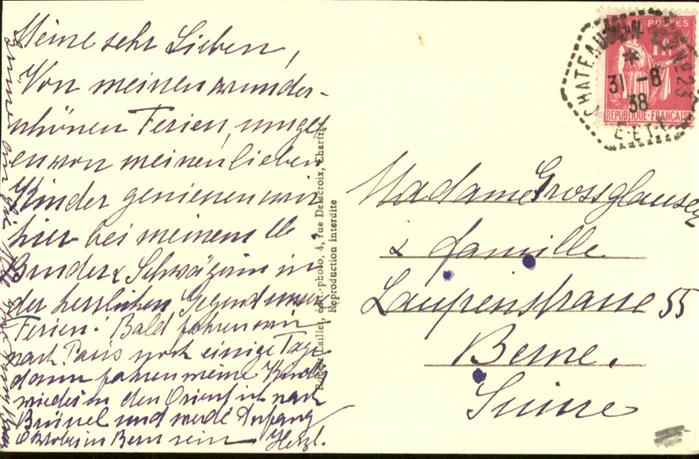 Meine sehr Lieben,
Von meinen wunder-
schönen Ferien, umge
en von meinen lieben
Kinder geniessen wir
hier bei meinem lb
Bruder & Schwägerin in
der herrlichen Gegend unsere
Ferien. Bald fahren wir
nach Paris noch einige Tage
dann fahren meine Kinder
wieder in den Orient ich nach
Brüssel und werde Anfang
Oktober in Bern sein Herzl.
4, rue Delacroix, Chartres
Reproduction interdite
POSTES
1F
RÉPUBLIQUE FRANÇAISE
CHATEAU
N°23
31 - 8
38
E-ET-L
Madame Grossglauser
& famille
Laupenstrasse 55
Berne.
Suisse